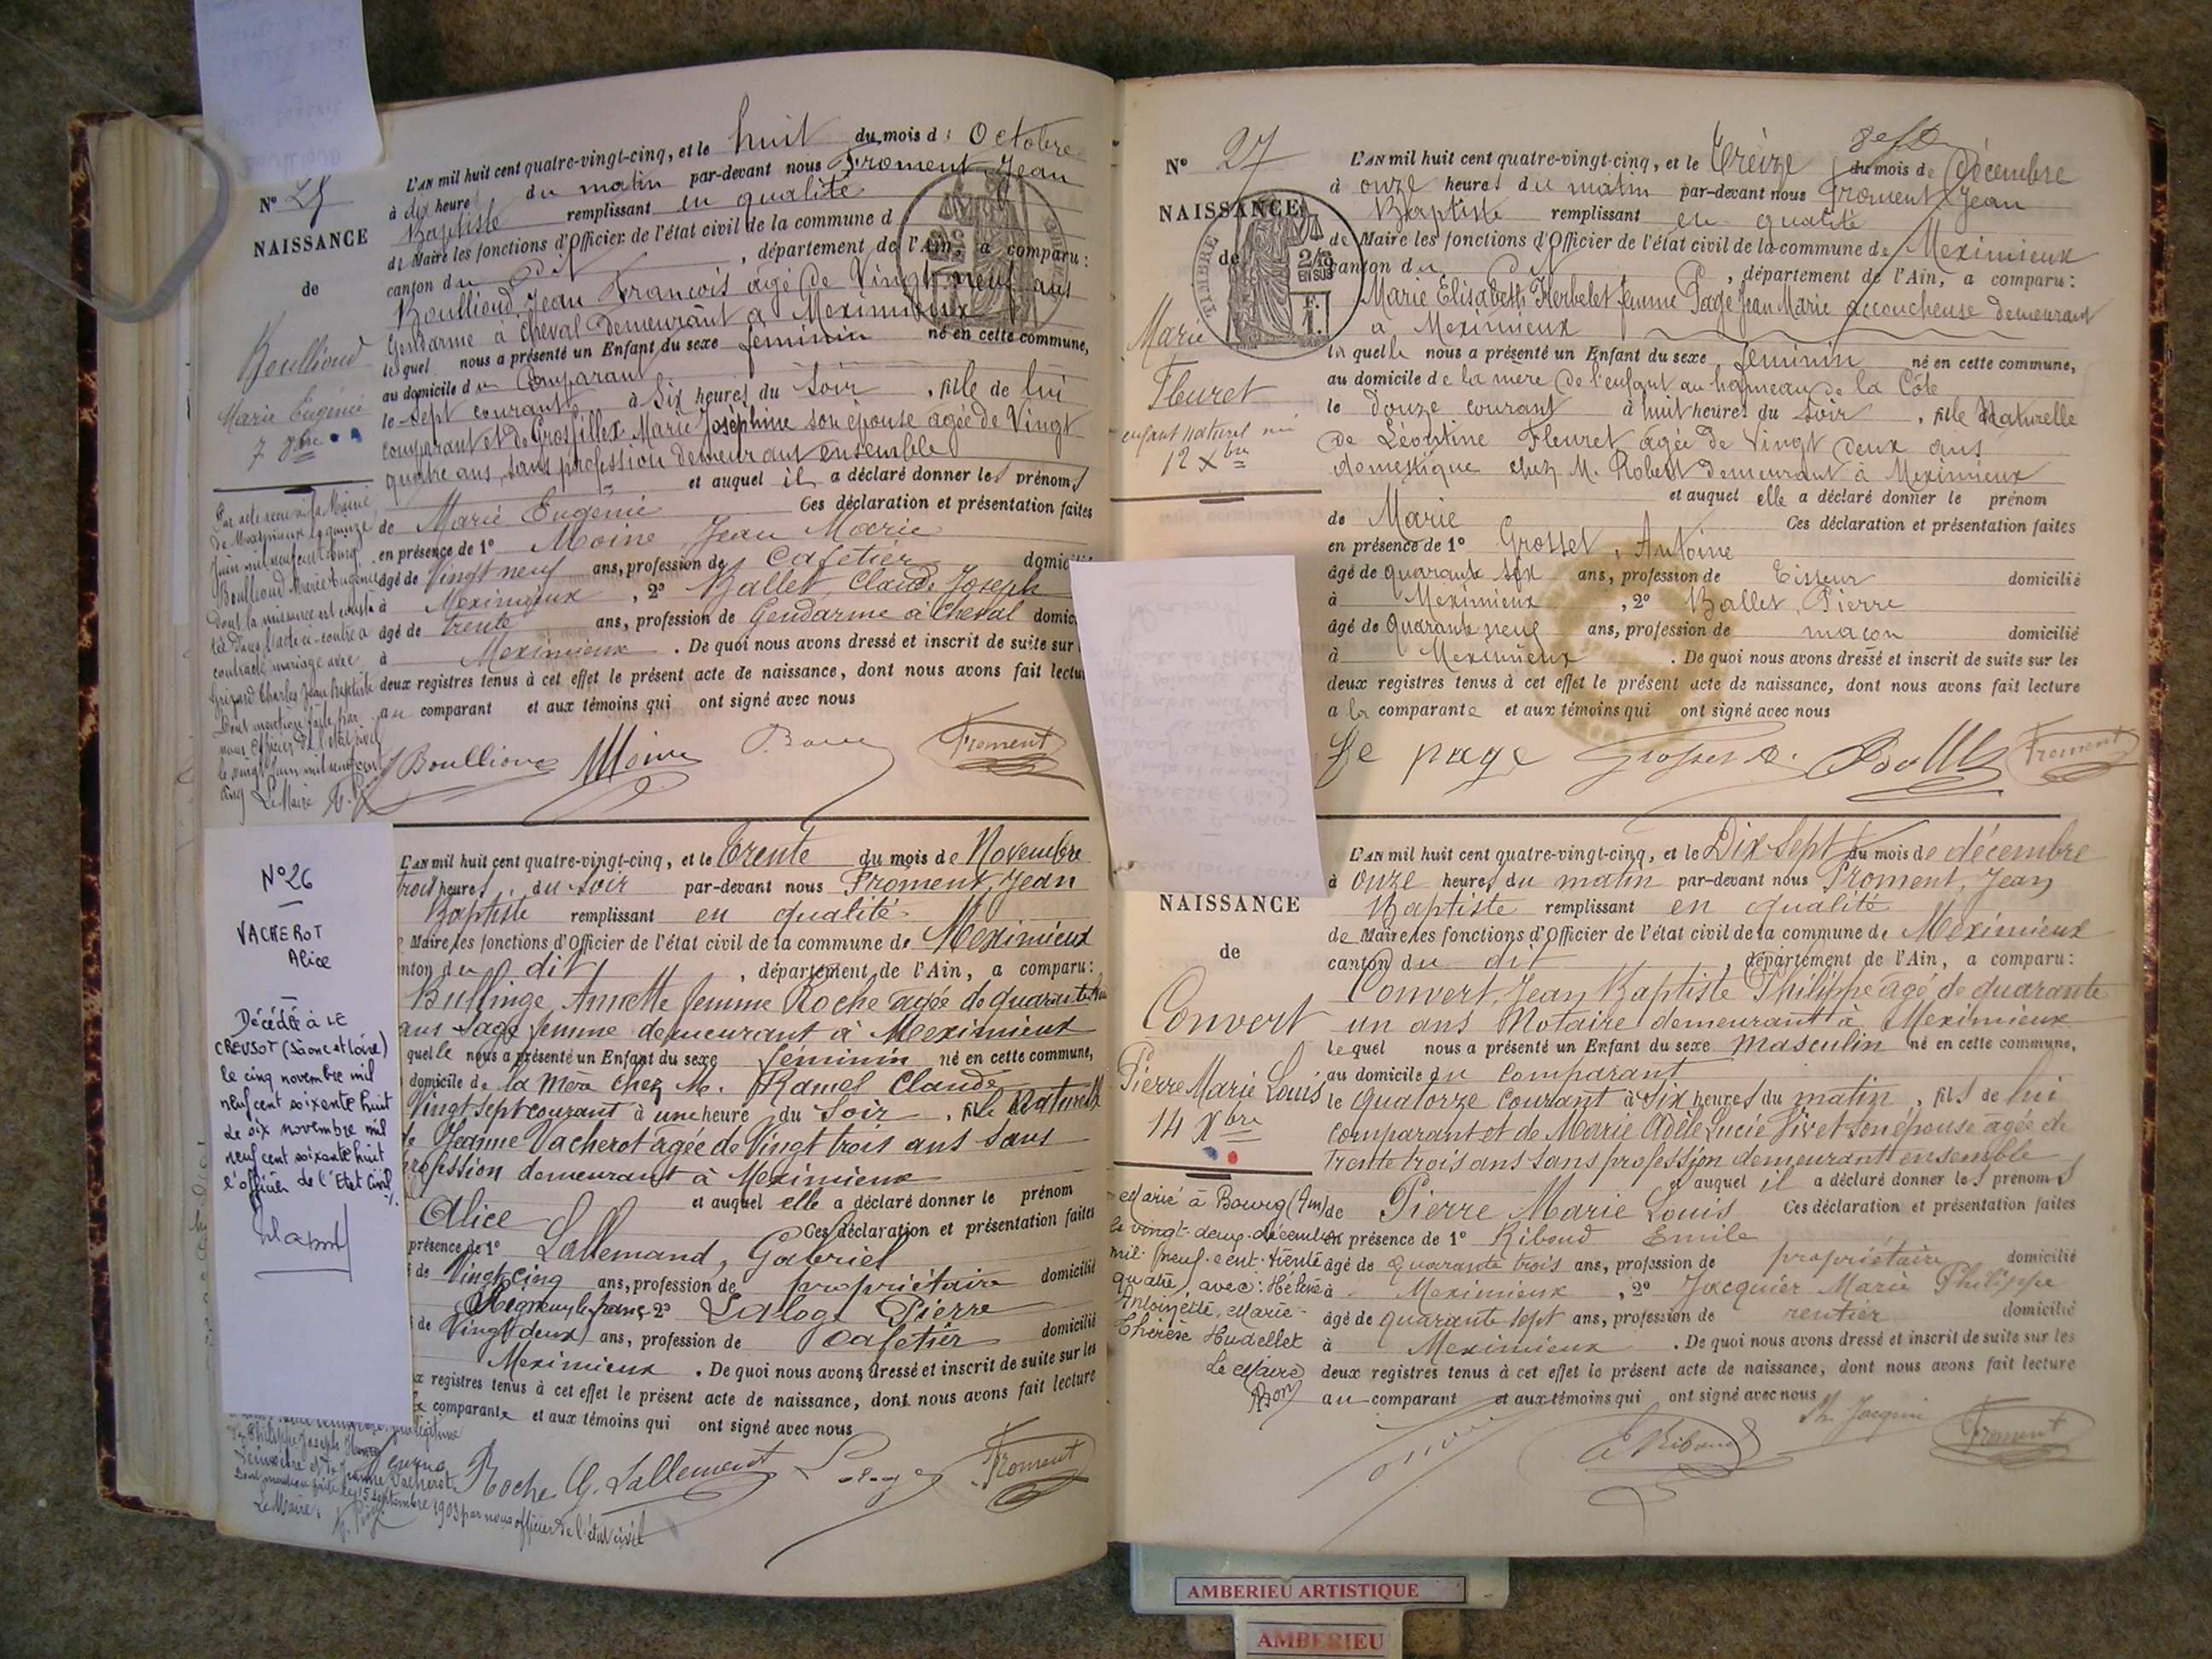 N° 25
NAISSANCE
de
Boullioud
Marie Eugénie
7 8bre
L'AN mil huit cent quatre-vingt-cinq, et le huit du mois d' Octobre
à dix heures du matin par-devant nous Froment Jean
Baptiste remplissant en qualité
de Maire les fonctions d'Officier de l'état civil de la commune d
canton du dit, département de l'Ain, a comparu :
Boullioud Jean François agé de Vingt neuf ans
Gendarme à Cheval demeurant à Meximieux
lequel nous a présenté un Enfant du sexe féminin né en cette commune,
au domicile du Comparant
le sept courant à Six heures du Soir, fille de lui
comparant et de Grosfillex Marie Joséphine son épouse agée de Vingt
quatre ans, sans profession demeurant ensemble
et auquel il a déclaré donner les prénoms
de Marie Eugénie Ces déclaration et présentation faites
en présence de 1° Moine Jean Marie
âgé de Vingt neuf ans, profession de Cafetier
à Meximieux, 2° Ballet, Claude Joseph
âgé de trente ans, profession de Gendarme à Cheval
à Meximieux. De quoi nous avons dressé et inscrit de suite sur
deux registres tenus à cet effet le présent acte de naissance, dont nous avons fait
au comparant et aux témoins qui ont signé avec nous
Boullioud Moine Froment
Par acte reçu à la Mairie
de Meximieux le quinze
Juin mil neuf cent cinq
Boullioud Marie Eugénie
dont la naissance est consta
tée dans l'acte ci-contre a
contracté mariage avec
Grizard Charles Jean Baptiste
Dont mention faite par
nous Officier de l'état civil
le vingt Juin mil neuf cent
cinq Le Maire
N°26
VACHEROT
Alice
Décédée à LE
CREUSOT (Saône et Loire)
le cinq novembre mil
neuf cent soixante huit
Le six novembre mil
neuf cent soixante huit
l'officier de l'Etat Civil
L'AN mil huit cent quatre-vingt-cinq, et le Trente du mois de Novembre
trois heures du soir par-devant nous Froment, Jean
Baptiste remplissant en qualité
Maire les fonctions d'Officier de l'état civil de la commune de Meximieux
du dit, département de l'Ain, a comparu :
Bullinge Annette femme Roche agée de quarante
ans Sage femme demeurant à Meximieux
quelle nous a présenté un Enfant du sexe féminin né en cette commune,
domicile de la mère chez M. Ramel Claude
Vingt sept courant à une heure du Soir, fille Naturelle
de Jeanne Vacherot agée de Vingt trois ans sans
profession demeurant à Meximieux
et auquel elle a déclaré donner le prénom
Alice Ces déclaration et présentation faites
présence de 1° Lallemand, Gabriel
de Vingt cinq ans, profession de propriétaire domicilié
2° Laloge Pierre
de Vingt deux ans, profession de Cafetier domicilié
Meximieux. De quoi nous avons dressé et inscrit de suite sur les
registres tenus à cet effet le présent acte de naissance, dont nous avons fait lecture
comparante et aux témoins qui ont signé avec nous
Roche G. Lallement Laloge Froment
légitime
Philippe Joseph
Jeanne Vacherot
Dont mention faite le 15 septembre 1903 par nous officier de l'état civil
Le Maire :
N° 27
NAISSANCE
de
TIMBRE
2/5 EN SUS
1 F.
Marie
Fleuret
enfant naturel née
12 Xbre
L'AN mil huit cent quatre-vingt-cinq, et le Treize du mois de Décembre
à onze heures du matin par-devant nous Froment Jean
Baptiste remplissant en qualité
de Maire les fonctions d'Officier de l'état civil de la commune de Meximieux
canton du dit, département de l'Ain, a comparu :
Marie Elisabeth Herbelet femme Page Jean Marie accoucheuse demeurant
à Meximieux
laquelle nous a présenté un Enfant du sexe féminin né en cette commune,
au domicile de la mère de l'enfant au hameau de la Côte
le douze courant à huit heures du soir, fille Naturelle
de Léontine Fleuret agée de Vingt deux ans
domestique chez M. Robert demeurant à Meximieux
et auquel elle a déclaré donner le prénom
de Marie Ces déclaration et présentation faites
en présence de 1° Grosset, Antoine
âgé de quarante six ans, profession de Tisseur domicilié
à Meximieux, 2° Ballet, Pierre
âgé de quarante neuf ans, profession de maçon domicilié
à Meximieux. De quoi nous avons dressé et inscrit de suite sur les
deux registres tenus à cet effet le présent acte de naissance, dont nous avons fait lecture
a la comparante et aux témoins qui ont signé avec nous
fe page Froment
NAISSANCE
de
Convert
Pierre Marie Louis
14 Xbre
L'AN mil huit cent quatre-vingt-cinq, et le Dix Sept du mois de décembre
à onze heures du matin par-devant nous Froment, Jean
Baptiste remplissant en qualité
de Maire les fonctions d'Officier de l'état civil de la commune de Meximieux
canton du dit, département de l'Ain, a comparu :
Convert, Jean Baptiste Philippe agé de quarante
un ans Notaire demeurant à Meximieux
lequel nous a présenté un Enfant du sexe masculin né en cette commune,
au domicile du comparant
le quatorze courant à six heures du matin, fils de lui
comparant et de Marie Adèle Lucie Vivet son épouse agée de
trente trois ans sans profession demeurant ensemble
et auquel il a déclaré donner les prénoms
de Pierre Marie Louis Ces déclaration et présentation faites
en présence de 1° Riboud Emile
âgé de quarante trois ans, profession de propriétaire domicilié
à Meximieux, 2° Jacquier Marie Philippe
âgé de quarante sept ans, profession de rentier domicilié
à Meximieux. De quoi nous avons dressé et inscrit de suite sur les
deux registres tenus à cet effet le présent acte de naissance, dont nous avons fait lecture
au comparant et aux témoins qui ont signé avec nous
E Riboud Ph. Jacquier Froment
Marié à Bourg (Ain)
le vingt-deux décembre
mil neuf-cent-trente
quatre avec : Hélène
Antoinette, Marie-
Thérèse Hudellet
Le Maire
AMBERIEU ARTISTIQUE
AMBERIEU